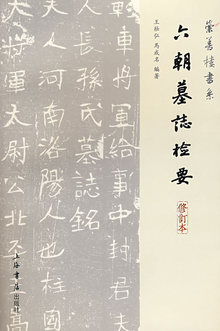 崇善樓書系
六朝墓誌检要
修订本
王壯弘 馬成名 編著
車將軍給事中封君夫
人長孫氏墓誌銘
夫人河南洛陽人也柱國
將軍太尉公北平
上海书店出版社